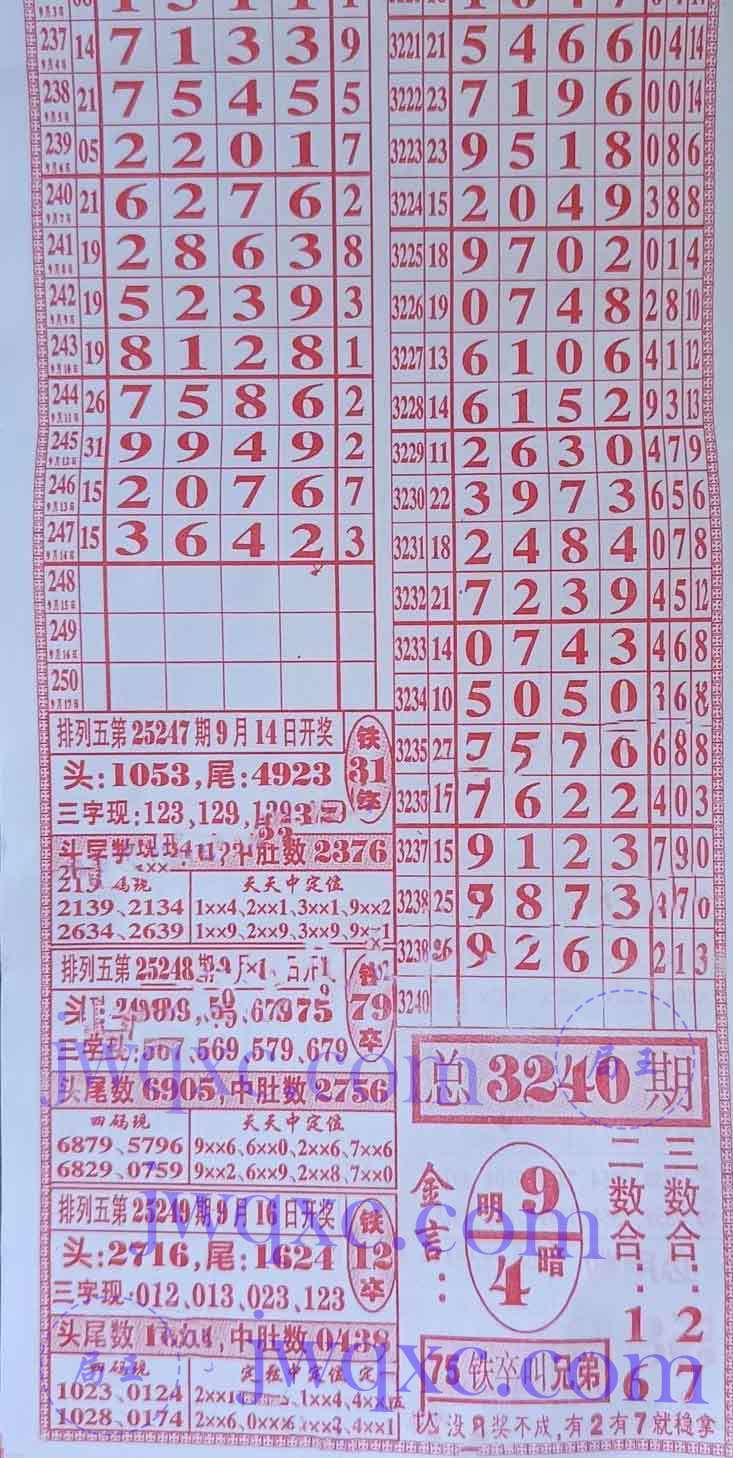 9月3日
237 9月4日 14 7 1 3 3 9
238 9月5日 21 7 5 4 5 5
239 9月6日 05 2 2 0 1 7
240 9月7日 21 6 2 7 6 2
241 9月8日 19 2 8 6 3 8
242 9月9日 19 5 2 3 9 3
243 9月10日 19 8 1 2 8 1
244 9月11日 26 7 5 8 6 2
245 9月12日 31 9 9 4 9 2
246 9月13日 15 2 0 7 6 7
247 9月14日 15 3 6 4 2 3
248 9月15日
249 9月16日
250 9月17日
排列五第25247期9月14日开奖
头:1053,尾:4923
铁31卒
三字现:123,129,
中肚数2376
天天中定位
2139、2134 1××4、2××1、3××1、9××2
2634、2639 1××9、2××9、3××9、9××1
排列五第25248期
铁79卒
三字现:567,569,579,679
头尾数6905,中肚数2756
四码现 天天中定位
6879、5796 9××6、6××0、2××6、7××6
6829、0759 9××2、6××9、2××8、7××0
排列五第25249期9月16日开奖
头:2716,尾:1624
铁12卒
三字现:012,013,023,123
头尾数 中肚数0438
四码现
1023、0124
1028、0174 2××6、4××1
3221 21 5 4 6 6 0 4 14
3222 23 7 1 9 6 0 0 14
3223 23 9 5 1 8 0 8 6
3224 15 2 0 4 9 3 8 8
3225 18 9 7 0 2 0 1 4
3226 19 0 7 4 8 2 8 10
3227 13 6 1 0 6 4 1 12
3228 14 6 1 5 2 9 3 13
3229 11 2 6 3 0 4 7 9
3230 22 3 9 7 3 6 5 6
3231 18 2 4 8 4 0 7 8
3232 21 7 2 3 9 4 5 12
3233 14 0 7 4 3 4 6 8
3234 10 5 0 5 0 3 6 8
3235 27 7 5 7 6 6 8 8
3233 17 7 6 2 2 4 0 3
3237 15 9 1 2 3 7 9 0
3238 25 9 8 7 3 4 7 0
9 2 6 9 2 1 3
3240
总3240期
金言:
明9
4暗
二数合:16
三数合:27
75铁卒叫兄弟
没9奖不成,有2有7就稳拿
jwqxc.com
局王
jwqxc.com
jwqxc.com
局王